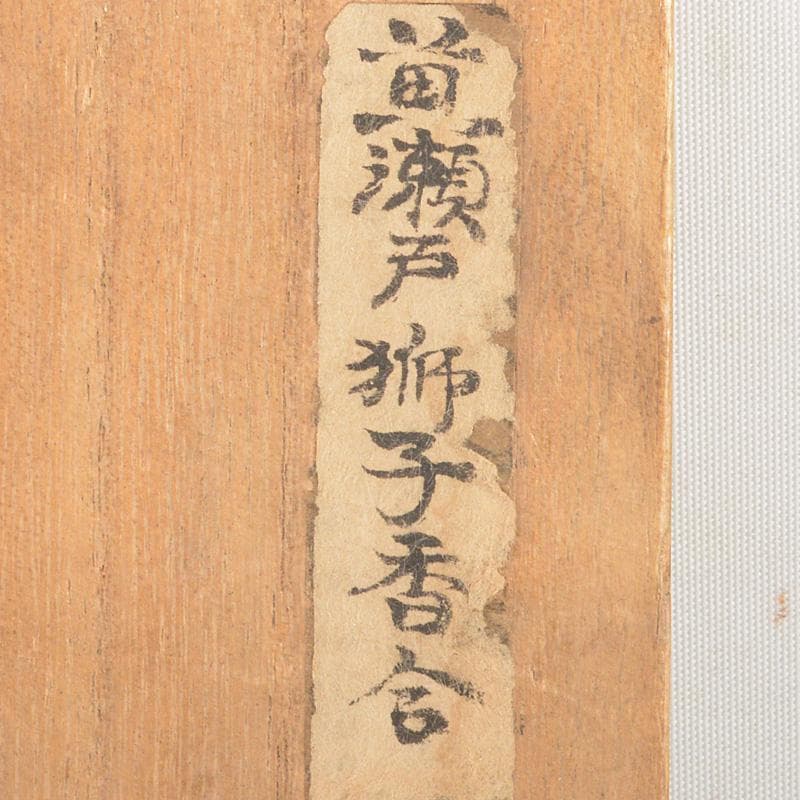 黄瀬戸獅子香合